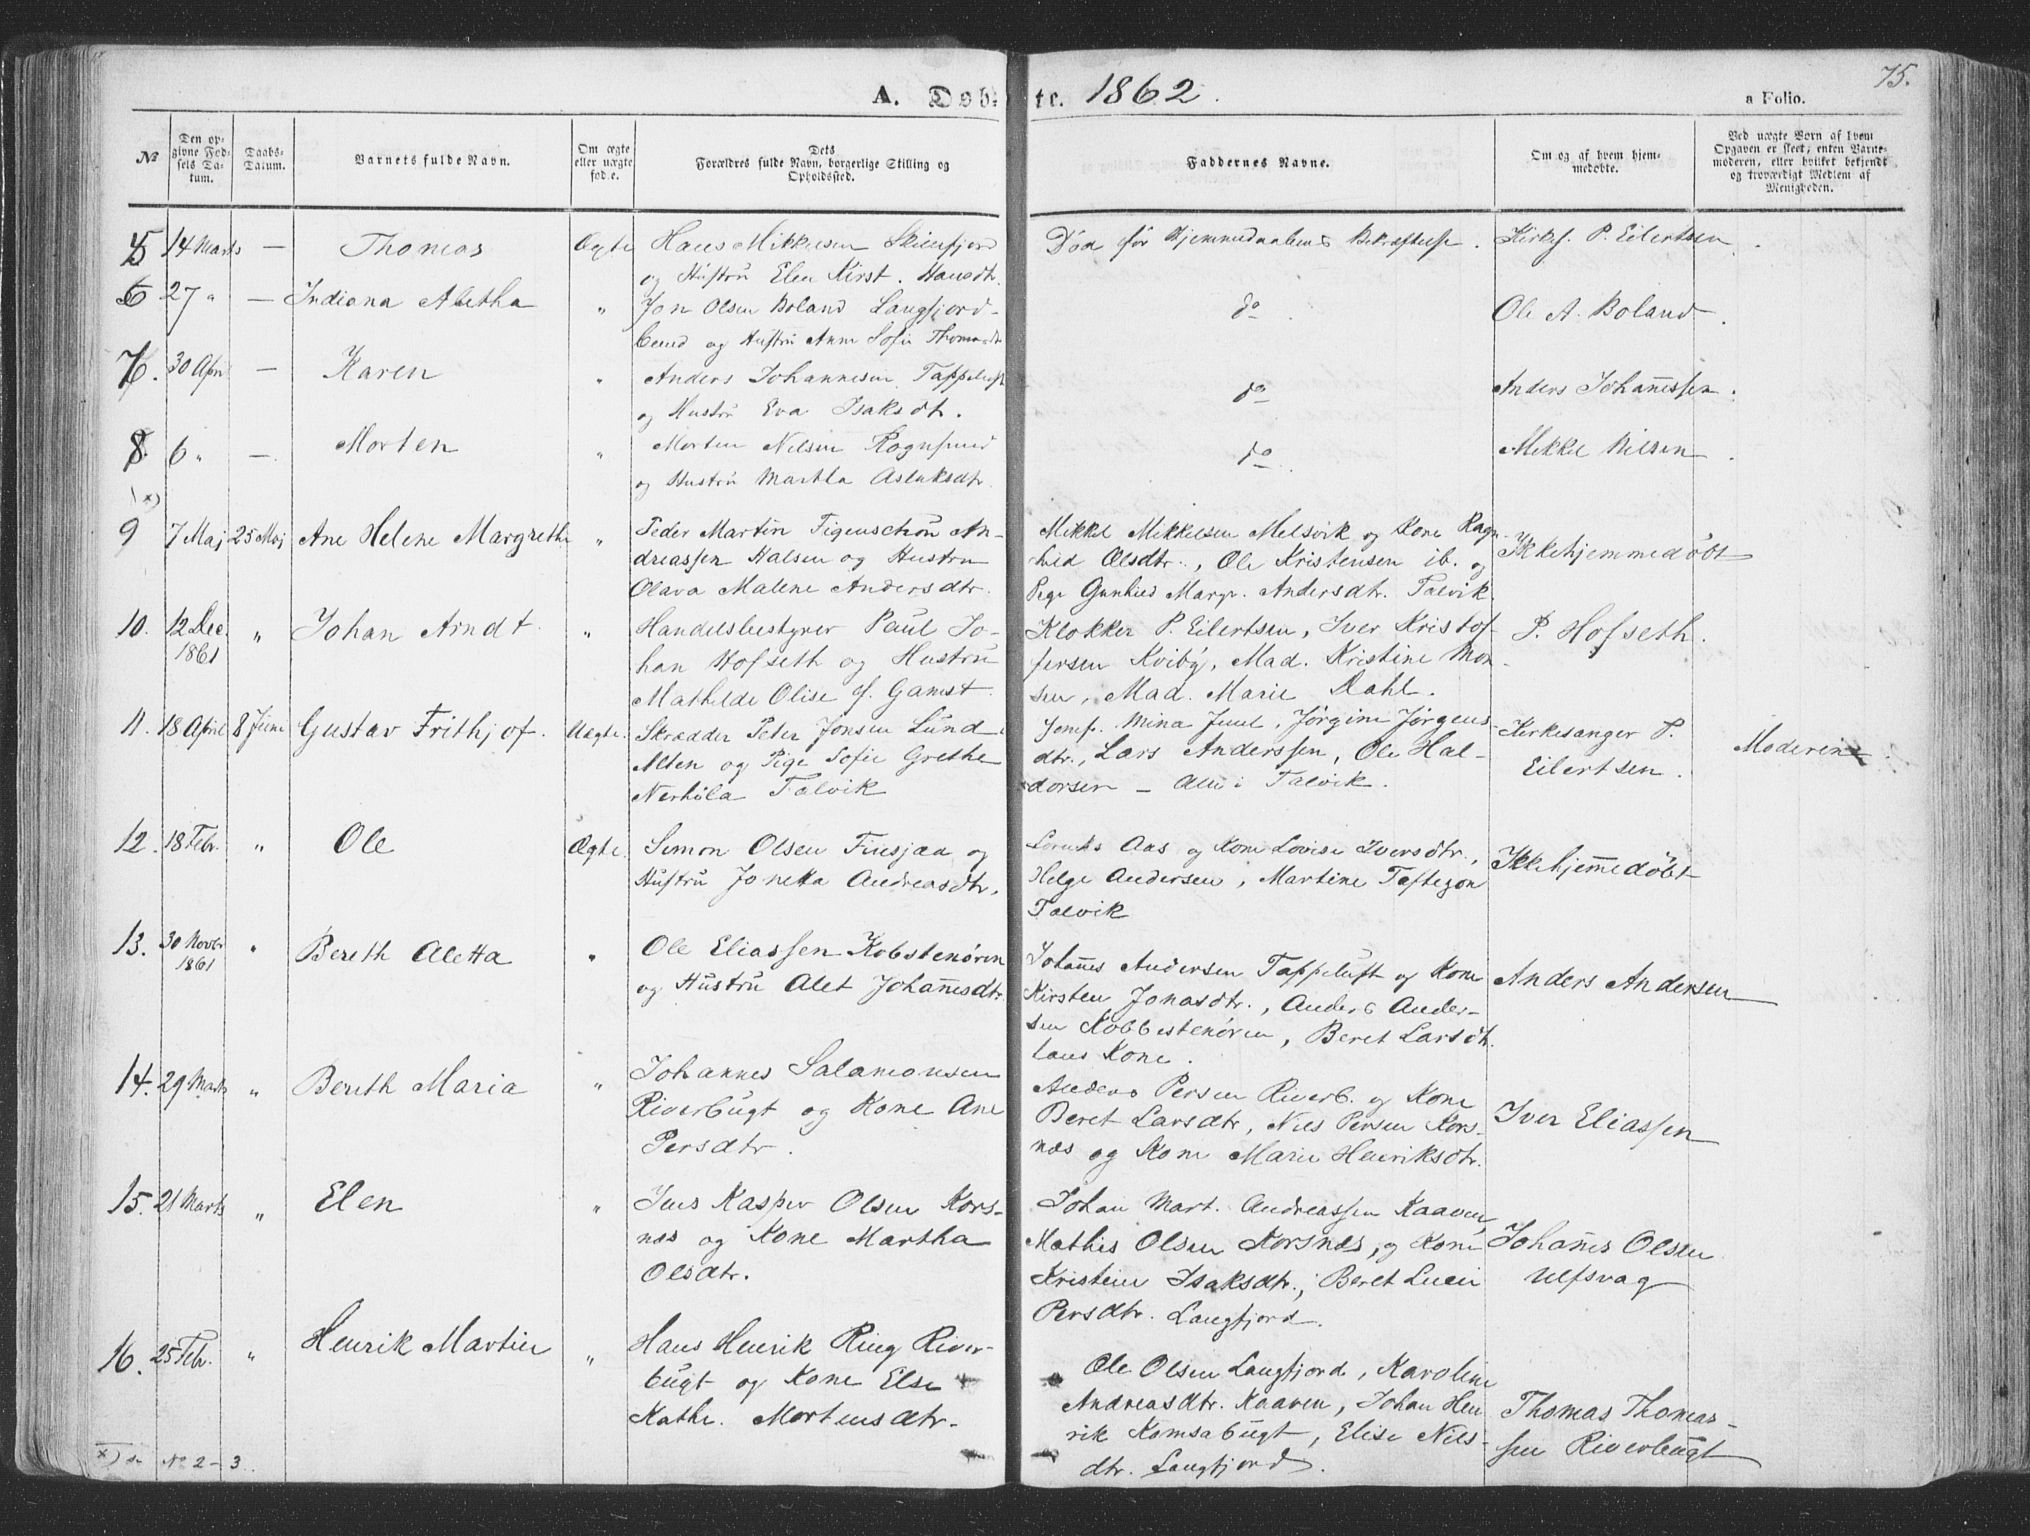 A. Døbte. 1862.
75.
a Folio.
№
Den opgivne Fødsels Datum.
Daabs-Datum.
Barnets fulde Navn.
Om ægte eller uægte føde.
Dets Forældres fulde Navn, borgerlige Stilling og Opholdssted.
Faddernes Navne.
Om og af hvem hjemmedøbte.
Ved uægte Børn af hvem Opgaven er skeet; enten Barnemoderen, eller hvilket bekjendt og troværdigt Medlem af Menigheden.
5 14 Marts — Thomas Ægte
Hans Mikkelsen Skiensfjord
og Hustru Elen Kirst. Hansdtr.
Død før Hjemmedaabens Bekræftelse.
Kirkes. P. Eilertsen
6 27 " — Indiana Aletha "
Jon Olsen Boland Langfjord-
bund og Hustru Anne Sofie Thomasdtr
do
Ole A. Boland.
7. 30 April — Karen "
Anders Johannesen Tappeluft
og Hustru Eva Isaksdtr.
do
Anders Johannessen.
8. 6 " — Morten "
Morten Nilsen Rognsund
og Hustru Martha Aslaksdtr.
do
Mikkel Nilsen.
x)
9 7 Maj 25 Maj Ane Helene Margrethe "
Peder Martin Figenschou An-
dreassen Halsen og Hustru
Olava Malene Andersdtr.
Mikkel Mikkelsen Melsvik og Kone Ragn-
hild Olsdtr., Ole Kristensen ib. og
Pige Gunhild Margr. Andersdtr. Talvik.
Ikkehjemmedøbt
10. 12 Dec. 1861 " Johan Arndt "
Handelsbestyrer Paul Jo-
han Hofseth og Hustru
Mathilde Olise f. Gamst.
Klokker P. Eilertsen, Iver Kristof-
fersen Kviby, Mad. Kristine Mon-
sen, Mad. Marie Dahl.
P. Hofseth.
11. 18 April 8 June Gustav Frithjof. Uægte.
Skrædder Peter Jonsen Lund
Alten og Pige Sofie Grethe
Nerhola Talvik
Jomf. Mina Juul, Jørgine Jørgens-
dtr., Lars Anderssen, Ole Hal-
dorsen — Alle i Talvik.
Kirkesanger P.
Eilertsen.
Moderen
12. 18 Febr. " Ole Ægte.
Simon Olsen Finsjaa og
Hustru Jonetta Andreasdtr.
Aas og Kone Lovise Iversdtr.,
Helge Andersen, Martine
Talvik
Ikkehjemmedøbt
13. 30 Novbr 1861 " Bereth Aletta "
Ole Eliassen Kobstenøren
og Hustru Alet Johannesdtr
Johannes Andersen Tappeluft og Kone
Kirsten Jonasdtr., Anders Ander-
sen Kobbestenøren, Beret Larsdtr.
hans Kone.
Anders Andersen
14. 29 Marts " Bereth Maria "
Johannes Salamonsen
Riverbugt og Kone Ane
Persdtr.
Anders Persen Riverb. og Kone
Beret Larsdtr, Nils Persen Kors-
næs og Kone Marie Henriksdtr.
Iver Eliassen
15. 21 Marts " Elen "
Jens Kasper Olsen Kors-
næs og Kone Martha
Olsdtr.
Johan Mart. Andreassen Kaaven,
Mathis Olsen Korsnæs, og Kone
Kristine Isaksdtr., Beret Lucie
Persdtr. Langfjord.
Johannes Olsen
Ulfsvag
16. 25 Febr. " Henrik Martin "
Hans Henrik Ring River-
bugt og Kone Else
Kathr. Mortensdtr.
Ole Olsen Langfjord, Karoline
Andreasdtr. Kaaven, Johan Hen-
rik Komsabugt, Elise Nils-
dtr. Langfjord.
Thomas Thomas-
sen Riverbugt
x) se No 2-3.